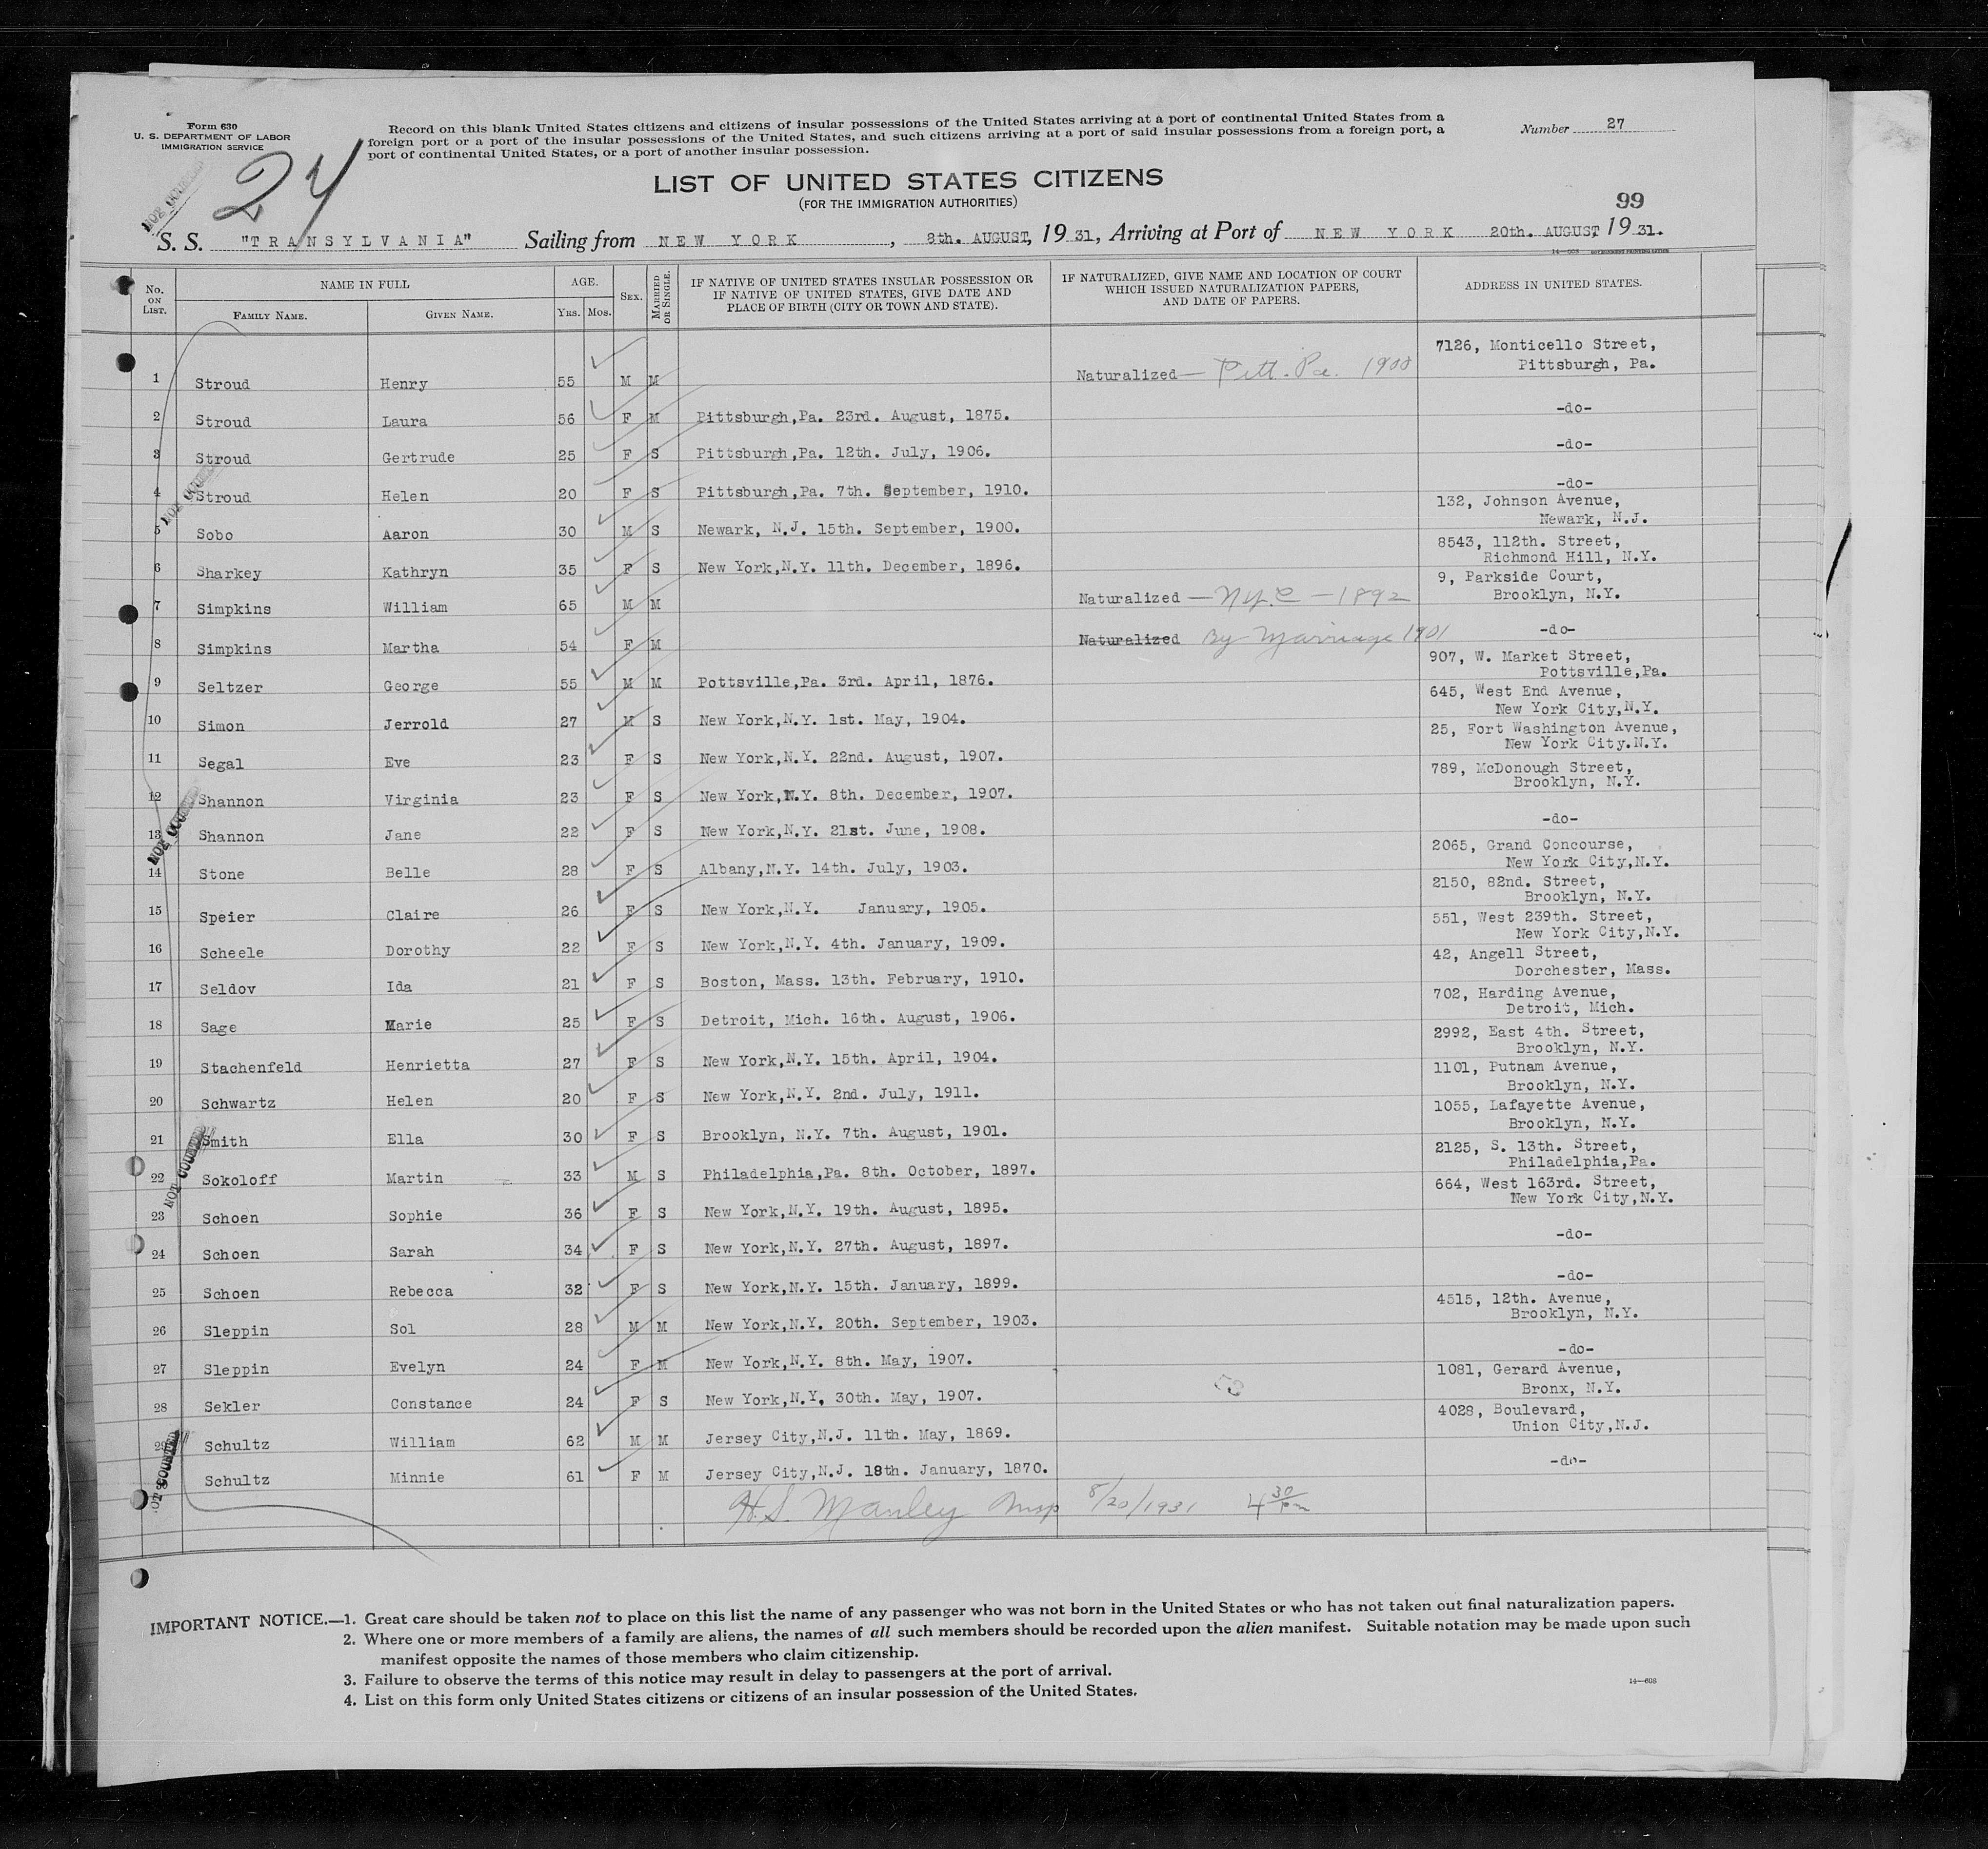 Form 630
U. S. DEPARTMENT OF LABOR
IMMIGRATION SERVICE
Record on this blank United States citizens and citizens of insular possessions of the United States arriving at a port of continental United States from a
foreign port or a port of the insular possessions of the United States, and such citizens arriving at a port of said insular possessions from a foreign port, a
port of continental United States, or a port of another insular possession.
Number 27
24
NOT COUNTED
LIST OF UNITED STATES CITIZENS
(FOR THE IMMIGRATION AUTHORITIES)
99
S. S. "TRANSYLVANIA" Sailing from NEW YORK, 8th. AUGUST, 1931, Arriving at Port of NEW YORK 20th. AUGUST 1931.
14—608 GOVERNMENT PRINTING OFFICE
No. ON LIST. NAME IN FULL FAMILY NAME. GIVEN NAME. AGE. YRS. MOS. SEX. MARRIED OR SINGLE. IF NATIVE OF UNITED STATES INSULAR POSSESSION OR IF NATIVE OF UNITED STATES, GIVE DATE AND PLACE OF BIRTH (CITY OR TOWN AND STATE). IF NATURALIZED, GIVE NAME AND LOCATION OF COURT WHICH ISSUED NATURALIZATION PAPERS, AND DATE OF PAPERS. ADDRESS IN UNITED STATES.
1 Stroud Henry 55 M M Naturalized — Pitt. Pa. 1908 7126, Monticello Street, Pittsburgh, Pa.
2 Stroud Laura 56 F M Pittsburgh,Pa. 23rd. August, 1875. -do-
3 Stroud Gertrude 25 F S Pittsburgh,Pa. 12th. July, 1906. -do-
4 Stroud Helen 20 F S Pittsburgh,Pa. 7th. September, 1910. -do-
NOT COUNTED
5 Sobo Aaron 30 M S Newark, N.J. 15th. September, 1900. 132, Johnson Avenue, Newark, N.J.
6 Sharkey Kathryn 35 F S New York,N.Y. 11th. December, 1896. 8543, 112th. Street, Richmond Hill, N.Y.
7 Simpkins William 65 M M Naturalized — N.Y.C — 1892 9, Parkside Court, Brooklyn, N.Y.
8 Simpkins Martha 54 F M Naturalized By Marriage 1901 -do-
9 Seltzer George 55 M M Pottsville,Pa. 3rd. April, 1876. 907, W. Market Street, Pottsville,Pa.
10 Simon Jerrold 27 M S New York,N.Y. 1st. May, 1904. 645, West End Avenue, New York City,N.Y.
11 Segal Eve 23 F S New York,N.Y. 22nd. August, 1907. 25, Fort Washington Avenue, New York City.N.Y.
12 Shannon Virginia 23 F S New York,N.Y. 8th. December, 1907. 789, McDonough Street, Brooklyn, N.Y.
NOT COUNTED
13 Shannon Jane 22 F S New York,N.Y. 21st. June, 1908. -do-
14 Stone Belle 28 F S Albany,N.Y. 14th. July, 1903. 2065, Grand Concourse, New York City,N.Y.
15 Speier Claire 26 F S New York,N.Y. January, 1905. 2150, 82nd. Street, Brooklyn, N.Y.
16 Scheele Dorothy 22 F S New York,N.Y. 4th. January, 1909. 551, West 239th. Street, New York City,N.Y.
17 Seldov Ida 21 F S Boston, Mass. 13th. February, 1910. 42, Angell Street, Dorchester, Mass.
18 Sage Marie 25 F S Detroit, Mich. 16th. August, 1906. 702, Harding Avenue, Detroit, Mich.
19 Stachenfeld Henrietta 27 F S New York,N.Y. 15th. April, 1904. 2992, East 4th. Street, Brooklyn, N.Y.
20 Schwartz Helen 20 F S New York,N.Y. 2nd. July, 1911. 1101, Putnam Avenue, Brooklyn, N.Y.
21 Smith Ella 30 F S Brooklyn, N.Y. 7th. August, 1901. 1055, Lafayette Avenue, Brooklyn, N.Y.
NOT COUNTED
22 Sokoloff Martin 33 M S Philadelphia,Pa. 8th. October, 1897. 2125, S. 13th. Street, Philadelphia,Pa.
23 Schoen Sophie 36 F S New York,N.Y. 19th. August, 1895. 664, West 163rd. Street, New York City,N.Y.
24 Schoen Sarah 34 F S New York,N.Y. 27th. August, 1897. -do-
25 Schoen Rebecca 32 F S New York,N.Y. 15th. January, 1899. -do-
26 Sleppin Sol 28 M M New York,N.Y. 20th. September, 1903. 4515, 12th. Avenue, Brooklyn, N.Y.
27 Sleppin Evelyn 24 F M New York,N.Y. 8th. May, 1907. -do-
28 Sekler Constance 24 F S New York,N.Y. 30th. May, 1907. 1081, Gerard Avenue, Bronx, N.Y.
29 Schultz William 62 M M Jersey City,N.J. 11th. May, 1869. 4028, Boulevard, Union City,N.J.
NOT COUNTED
Schultz Minnie 61 F M Jersey City,N.J. 18th. January, 1870. -do-
H.S. Manley Insp 8/20/1931 4 30 pm
IMPORTANT NOTICE.—1. Great care should be taken not to place on this list the name of any passenger who was not born in the United States or who has not taken out final naturalization papers.
2. Where one or more members of a family are aliens, the names of all such members should be recorded upon the alien manifest. Suitable notation may be made upon such
manifest opposite the names of those members who claim citizenship.
3. Failure to observe the terms of this notice may result in delay to passengers at the port of arrival.
4. List on this form only United States citizens or citizens of an insular possession of the United States.
14—608